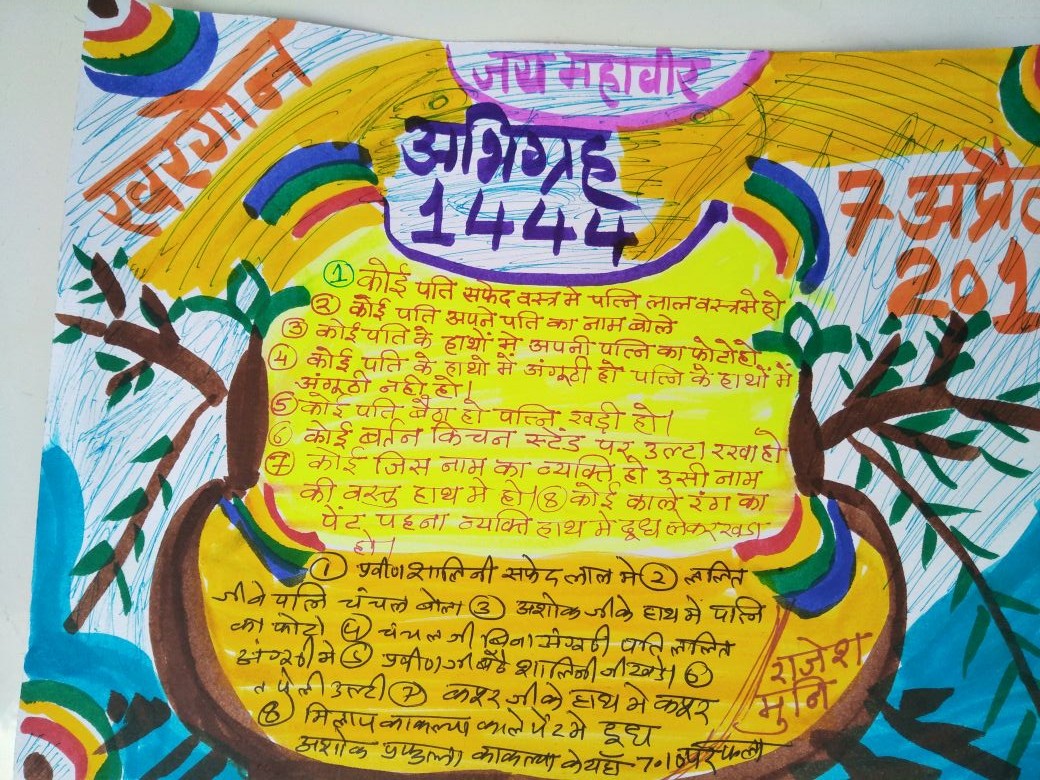 जय महावीर
खरगोन
अभिग्रह
1444
7 अप्रै
201
① कोई पति सफेद वस्त्र मे पत्नि लाल वस्त्र मे हो
② कोई पति अपने पति का नाम बोले
③ कोई पति के हाथों में अपनी पत्नि का फोटो हो
④ कोई पति के हाथो में अंगूठी हो पत्नि के हाथों में
अंगूठी नही हो।
⑤ कोई पति बैठा हो पत्नि खड़ी हो।
⑥ कोई बर्तन किचन स्टेंड पर उल्टा रखा हो
⑦ कोई जिस नाम का व्यक्ति हो उसी नाम
की वस्तु हाथ मे हो। ⑧ कोई काले रंग का
पेंट पहना व्यक्ति हाथ मे दूध लेकर खड़ा
हो।
① प्रवीण शालिनी सफेद लाल मे ② ललित
जी ने पत्नि चंचल बोला ③ अशोक जी के हाथ मे पत्नि
का फोटो ④ चंचल जी बिना पति ललित
अंगूठी मे ⑤ प्रवीण जी बैठे शालिनी जी खडी ⑥
तपेली उल्टी ⑦ जी के हाथ मे
⑧ मिलाप काकल्या काले पेंट मे दूध
अशोक प्रफुल्ला काकल्या के यहाँ 7.10 पर फला
राजेश
मुनि